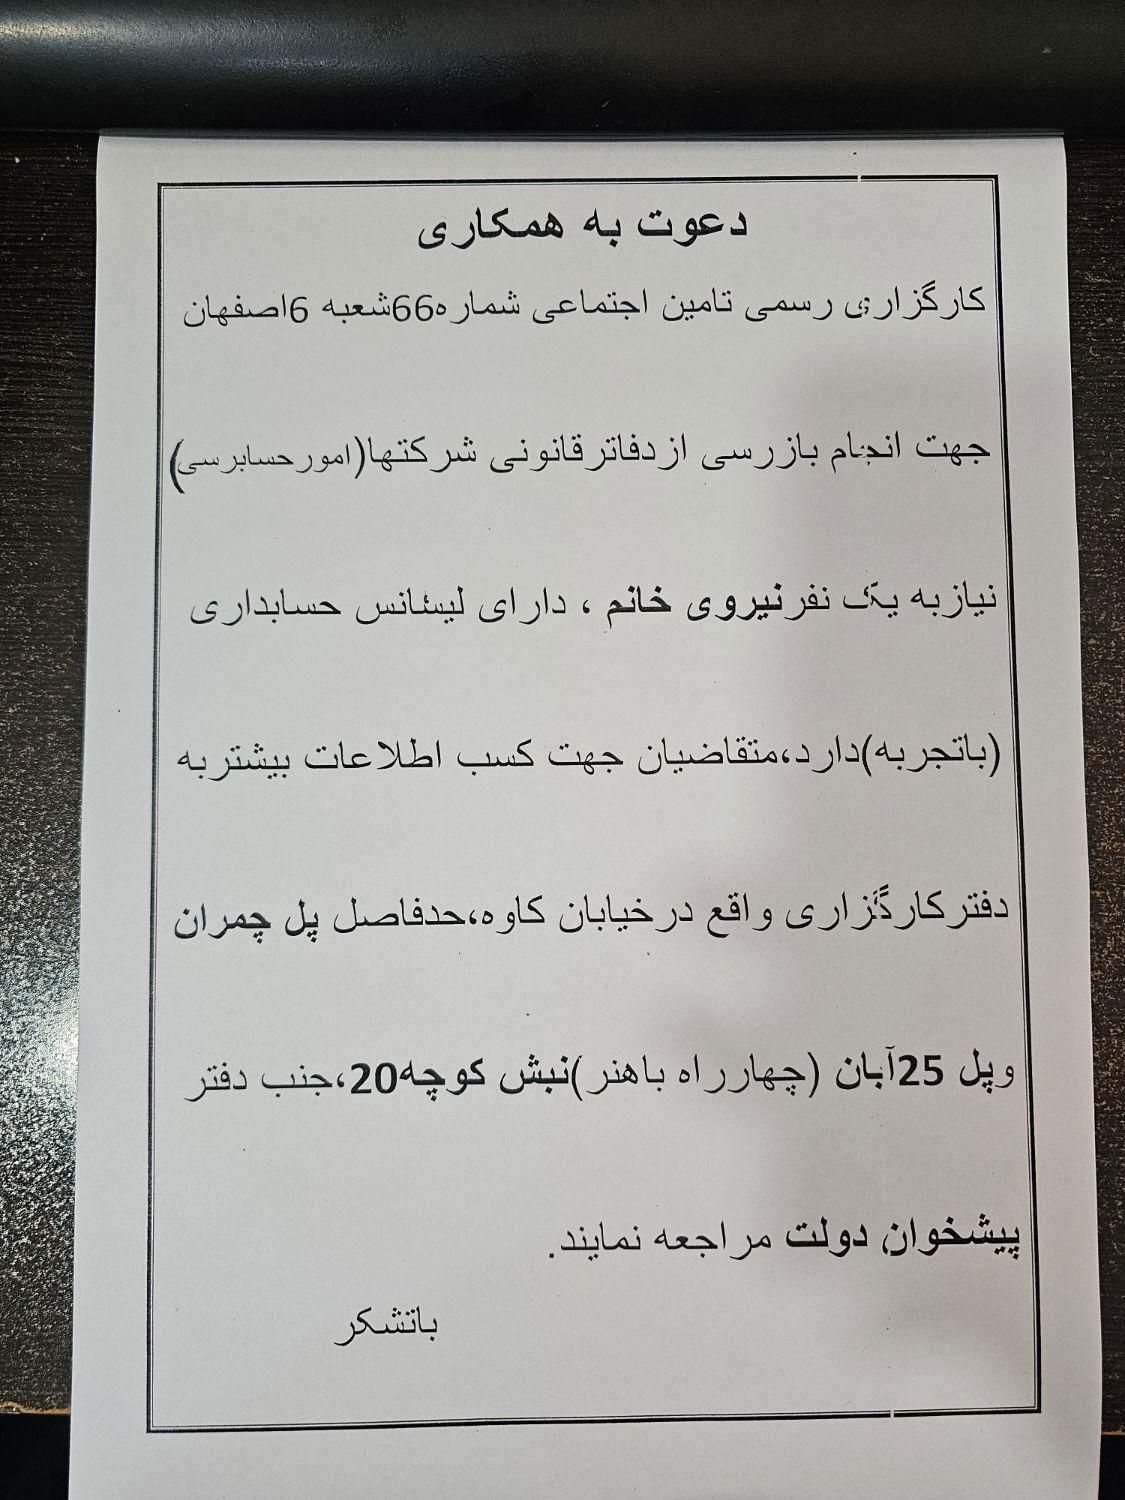 دعوت به همکاری
کارگزاری رسمی تامین اجتماعی شماره66شعبه 6اصفهان
جهت انجام بازرسی ازدفاترقانونی شرکتها(امورحسابرسی)
نیازبه یک نفرنیروی خانم ، دارای لیسانس حسابداری
(باتجربه)دارد،متقاضیان جهت کسب اطلاعات بیشتربه
دفترکارگزاری واقع درخیابان کاوه،حدفاصل پل چمران
وپل 25آبان (چهارراه باهنر)نبش کوچه20،جنب دفتر
پیشخوان دولت مراجعه نمایند.
باتشکر